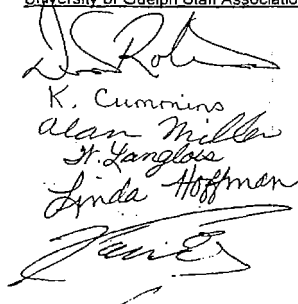 University of Guelph Staff Association
K. Cummins
Alan Miller
H. Langlois
Linda Hoffman